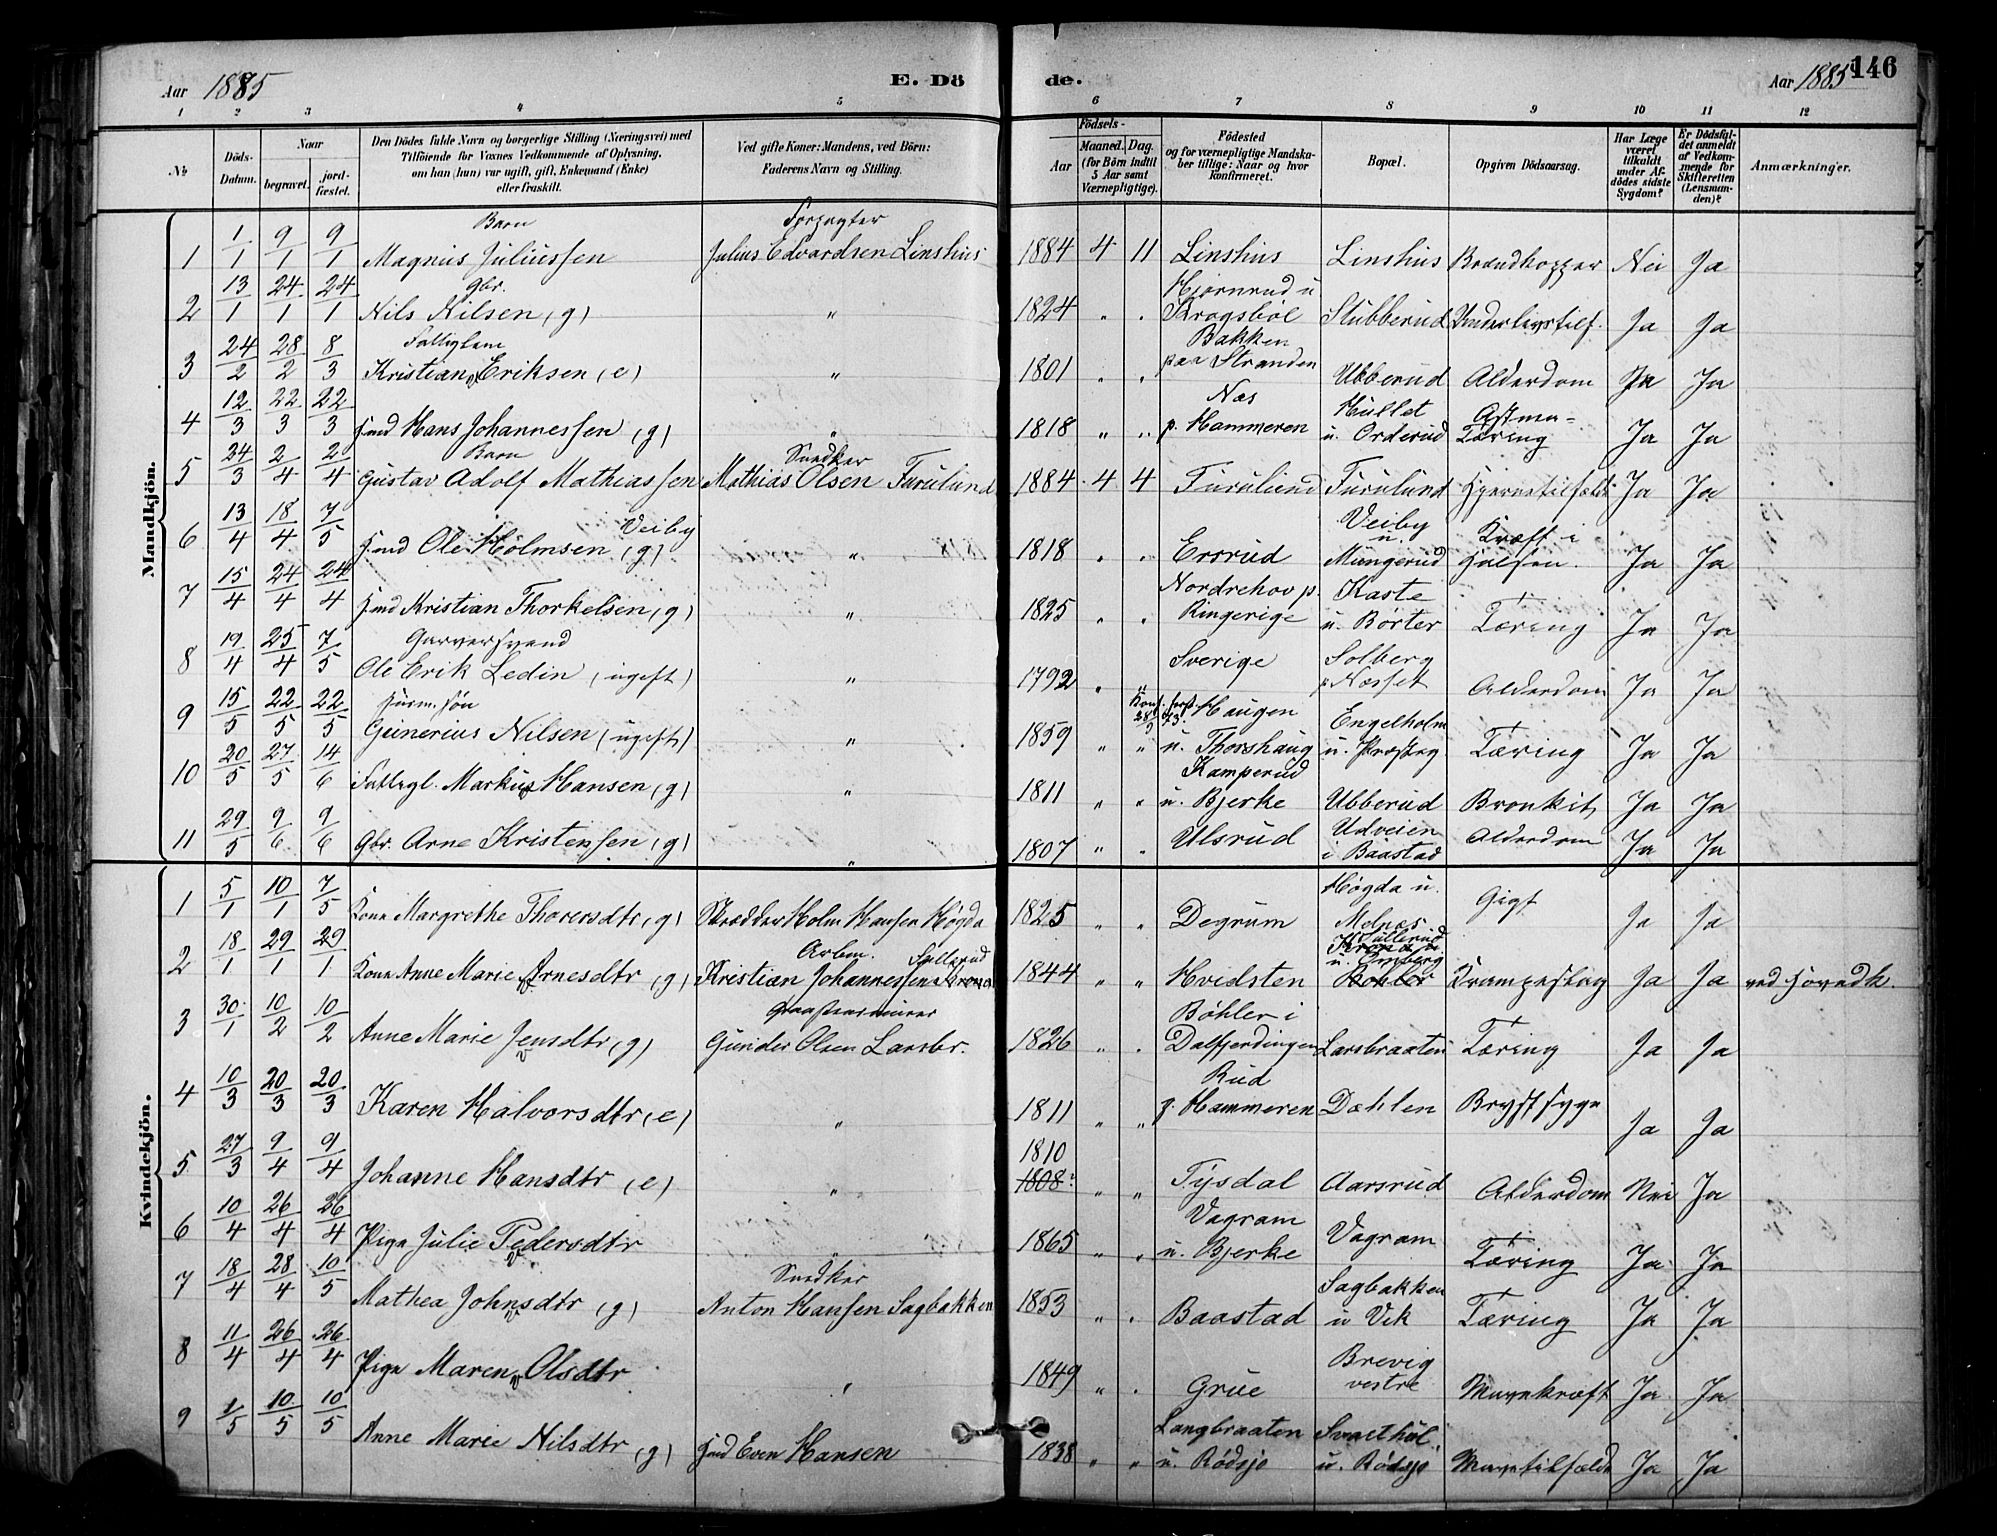 Aar 1885
E. Dö
de.
Aar 1885
146
1 2 3 4 5 6 7 8 9 10 11 12
№
Döds-Datum.
Naar
begravet.
jord-fæstet.
Den Dödes fulde Navn og borgerlige Stilling (Næringsvei) med
Tilföiende for Voxnes Vedkommende af Oplysning,
om han (hun) var ugift, gift, Enkemand (Enke)
eller fraskilt.
Ved gifte Koner: Mandens, ved Börn:
Faderens Navn og Stilling.
Födsels-
Aar
Maaned. Dag.
(for Börn indtil
5 Aar samt
Værnepligtige).
Födested
og for værnepligtige Mandska-
ber tillige: Naar og hvor
Konfirmeret.
Bopæl.
Opgiven Dödsaarsag.
Har Læge
været
tilkaldt
under Af-
dödes sidste
Sygdom?
Er Dödsfal-
det anmeldt
af Vedkom-
mende for
Skifteretten
(Lensman-
den)?
Anmærkninger.
Mandkjön.
1 1/1 9/1 9/1 Barn Magnus Juliussen Forpagter Julius Edvardsen Linshus 1884 4 11 Linshus Linshus Brandkopper Nei Ja
2 13/1 24/1 24/1 Gbr. Nils Nilsen (g) " 1824 " " Hjørnrud u Krogsbøl Stubberud Underlivstilf. Ja Ja
3 24/2 28/2 8/3 Fattiglem Kristian Eriksen (e) " 1801 " " Bakken paa Stranden Ubberud Alderdom Ja Ja
4 12/3 22/3 22/3 Hmd Hans Johannessen (g) " 1818 " " Næs p. Hammeren Hullet u. Orderud Astma-Tæring Ja Ja
5 24/3 2/4 2/4 Barn Gustav Adolf Mathiassen Snedker Mathias Olsen Furulund 1884 4 4 Furulund Furulund Hjernetilfælde Ja Ja
6 13/4 18/4 7/5 Hmd Ole Holmsen Veiby (g) " 1818 " " Ersrud Veiby u. Mungerud Kræft i Halsen. Ja Ja
7 15/4 24/4 24/4 Hmd Kristian Thorkelsen (g) " 1825 " " Nordrehov p. Ringerige Kaste u. Børter Tæring Ja Ja
8 19/4 25/4 7/5 Garversvend Ole Erik Ledin (ugift) " 1792 " " Sverige Solberg p Næsset Alderdom Ja Ja
9 15/5 22/5 22/5 Husm. søn Gunerius Nilsen (ugift) " 1859 " " Haugen u. Thorshaug Engelholm u. Presteg Tæring Ja Ja
10 20/5 27/5 14/6 Fattigl. Markus Hansen (g) " 1811 " " Kamperud u. Bjerke Ubberud Bronkit Ja Ja
11 29/5 9/6 9/6 Gbr. Arne Kristensen (g) " 1807 " " Ulsrud Udveien i Baastad Alderdom Ja Ja
Kvindekjön.
1 5/1 10/1 7/5 Kone Margrethe Thorersdtr (g) Skrædder Holm Hansen Høgda 1825 " " Degrum Høgda u. Melnæs Gigt Ja Ja
2 18/1 29/1 29/1 Kone Anne Marie Arnesdtr (g) Arbm. Kristian Johannessen Krona Fallerud 1844 " " Hvidsten Fallerud u. Omberg Krona u Bøhler Krampeslag Ja Ja ved Hovedk.
3 30/1 10/2 10/2 Anne Marie Jensdtr (g) Graasteensmurer Gunder Olsen Larsbr. 1826 " " Bøhler i Dalfjerdingen Larsbraaten Tæring Ja Ja
4 10/3 20/3 20/3 Karen Halvorsdtr (e) " 1811 " " Rud p. Hammeren Dæhlen Brystsyge Ja Ja
5 27/3 9/4 9/4 Johanne Hansdtr (e) " 1810 1808 " " Tysdal Aarsrud Alderdom Nei Ja
6 10/4 26/4 26/4 Pige Julie Pedersdtr " 1865 " " Vagram u. Bjerke Vagram Tæring Ja Ja
7 18/4 28/4 10/5 Mathea Johnsdtr (g) Snedker Anton Hansen Sagbakken 1853 " " Baastad Sagbakken u Vik Tæring Ja Ja
8 11/4 26/4 26/4 Pige Maren Olsdtr " 1849 " " Grue Brevig vestre Mavekræft Ja Ja
9 1/5 10/5 10/5 Anne Marie Nilsdtr (g) Hmd Even Hansen 1838 " " Langbraaten u. Rødsjø Svarthul u. Rødsjø Mavetilfælde Ja Ja